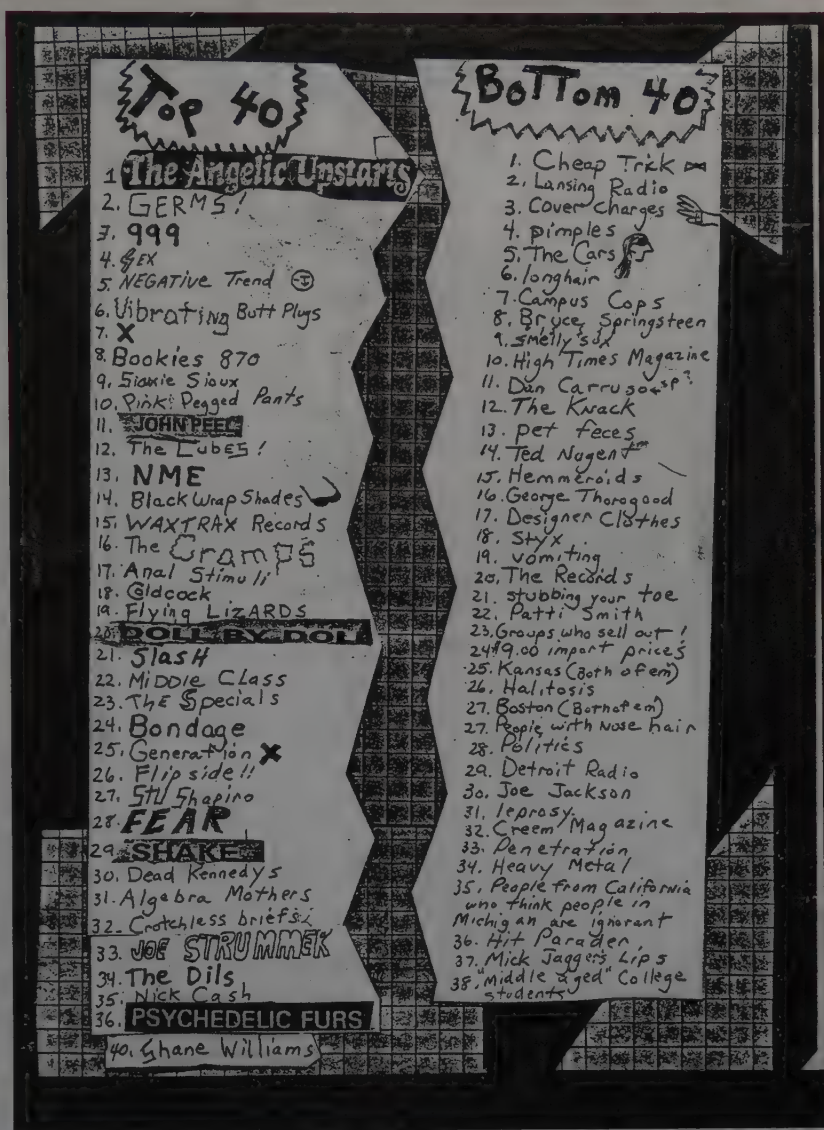 Top 40
1 The Angelic Upstarts
2. GERMS!
3. 999
4. SEX
5. NEGATiVE Trend
6. Vibrating Butt Plugs
7. X
8. Bookies 870
9. Sioxie Sioux
10. Pink Pegged Pants
11. JOHN PEEL
12. The LubeS!
13. NME
14. Black Wrap Shades
15. WAXTRAX Records
16. The Cramps
17. Anal Stimuli
18. Gldcock
19. Flying LiZARDS
20. DOLL BY DOLL
21. SlasH
22. MiDDLE Class
23. ThE Specials
24. Bondage
25. Generation X
26. Flip side!!
27. Stu Shapiro
28. FEAR
29 SHAKE
30. Dead Kennedys
31. Algebra Mothers
32. Crotchless briefs
33. JOE STRUMMER
34. The Dils
35. Nick Cash
36. PSYCHEDELIC FURS
40. Shane Williams
BoTTom 40
1. Cheap Trick
2. Lansing Radio
3. Cover Charges
4. pimples
5. The Cars
6. longhair
7. Campus Cops
8. Bruce Springsteen
9. smelly sox
10. High Times Magazine
11. Dan Carruso sp?
12. The Knack
13. pet feces
14. Ted Nugent
15. Hemmeroids
16. George Thorogood
17. Designer Clothes
18. Styx
19. vomiting
20. The Records
21. stubbing your toe
22. Patti Smith
23. Groups who sell out!
24 $9.00 import prices
25. Kansas (Both of em)
26. Halitosis
27. Boston (Both of em)
27. People with Nose hair
28. Politics
29. Detroit Radio
30. Joe Jackson
31. leprosy
32. Creem Magazine
33. Penetration
34. Heavy Metal
35. People from California
who think people in
Michigan are ignorant
36. Hit Parader
37. Mick Jaggers Lips
38. "Middle aged" College
students